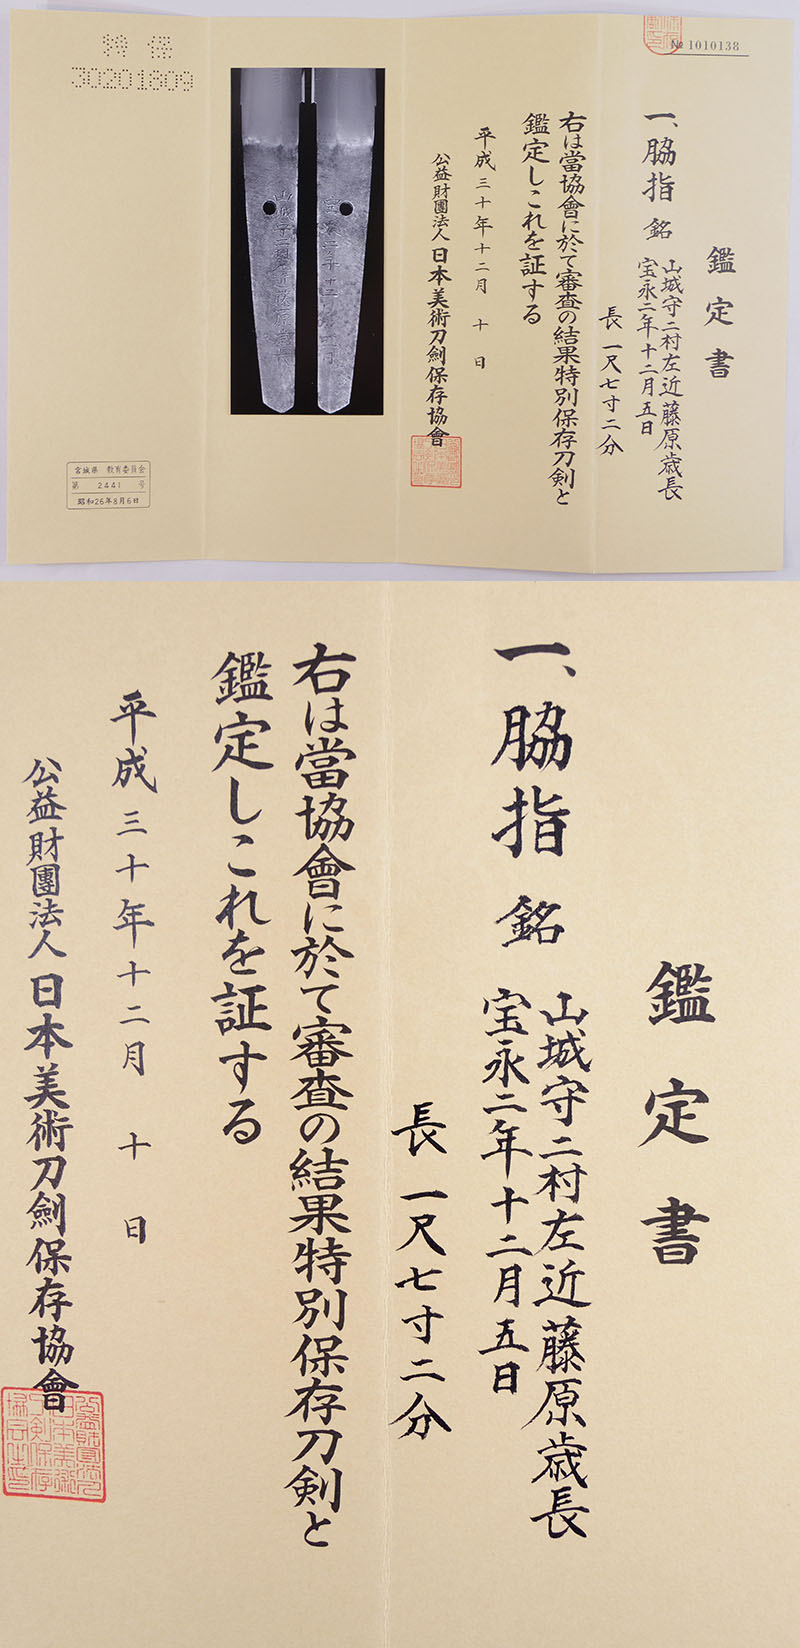 № 1010138
鑑定書
一、脇指 銘 山城守二村左近藤原歳長
宝永二年十二月五日
長 一尺七寸二分
右は當協會に於て審査の結果特別保存刀剣と
鑑定しこれを証する
平成三十年十二月 十日
公益財團法人 日本美術刀劍保存協會
特保
30201809
宮城県 教育委員会
第 2441 号
昭和26年8月6日
鑑定書
一、脇指 銘 山城守二村左近藤原歳長
宝永二年十二月五日
長 一尺七寸二分
右は當協會に於て審査の結果特別保存刀剣と
鑑定しこれを証する
平成三十年十二月 十日
公益財團法人 日本美術刀劍保存協會